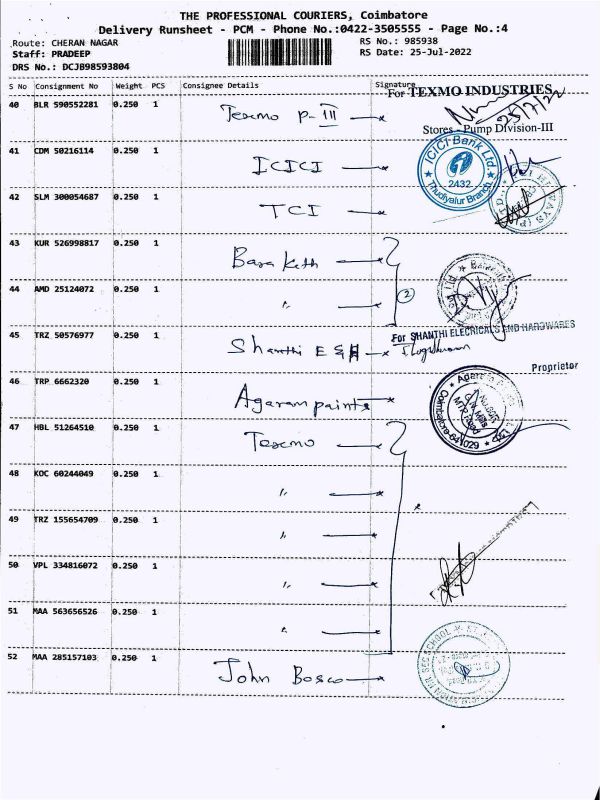 THE PROFESSIONAL COURIERS, Coimbatore
Delivery Runsheet - PCM - Phone No.:0422-3505555 - Page No.:4
Route: CHERAN NAGAR RS No.: 985938
Staff: PRADEEP RS Date: 25-Jul-2022
DRS No.: DCJB98593804
S No Consignment No Weight PCS Consignee Details Signature
For TEXMO INDUSTRIES
40 BLR 590552281 0.250 1 Texmo P-III
25/7/22
Stores - Pump Division-III
41 CDM 50216114 0.250 1 ICICI
ICICI Bank Ltd.
2432
Thudiyalur Branch
42 SLM 300054687 0.250 1 TCI
43 KUR 526998817 0.250 1 Baraketh
44 AMD 25124072 0.250 1 " 2
For SHANTHI ELECRICALS AND HARDWARES
45 TRZ 50576977 0.250 1 Shanthi E & H
Proprietor
46 TRP 6662320 0.250 1 Agaram paints
MTP Road
Coimbatore-641029
47 HBL 51264510 0.250 1 Texmo
48 KOC 60244049 0.250 1 "
49 TRZ 155654709 0.250 1 "
50 VPL 334816072 0.250 1 "
51 MAA 563656526 0.250 1 "
52 MAA 285157103 0.250 1 John Bosco